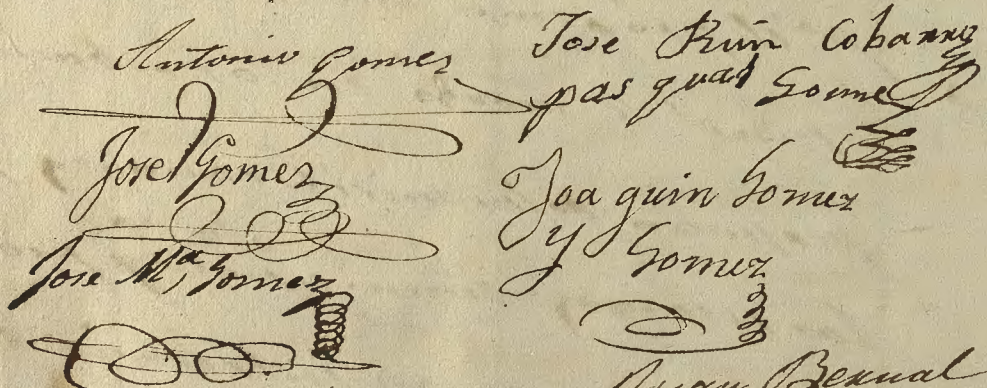 Antonio Gomez
Jose Gomez
Jose Mª Gomez
Jose Ruiz
pasqual Gomez
Joaquin Gomez
y Gomez
Bernal